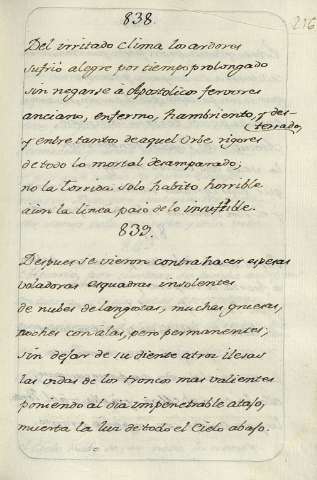 838.
216
Del irritado clima los ardores
sufrio alegre por tiempo prolongado
sin negarse à Apostolicos fervores
anciano, enfermo, hambriento, y des-
terrado,
y entre tantos de aquel Orbe rigores
de todo lo mortal desamparado;
no la torrida solo habitò horrible
aun la linea pasò de lo insufrible.
839.
Despues se vieron contrahacer espesas
voladoras esquadras insolentes
de nubes de langostas, muchas gruesas,
noches con alas, pero permanentes;
sin dejar de su diente atroz ilesas
las vidas de los troncos mas valientes
poniendo al dia impenetrable atajo,
muerta la luz de todo el Cielo abajo.